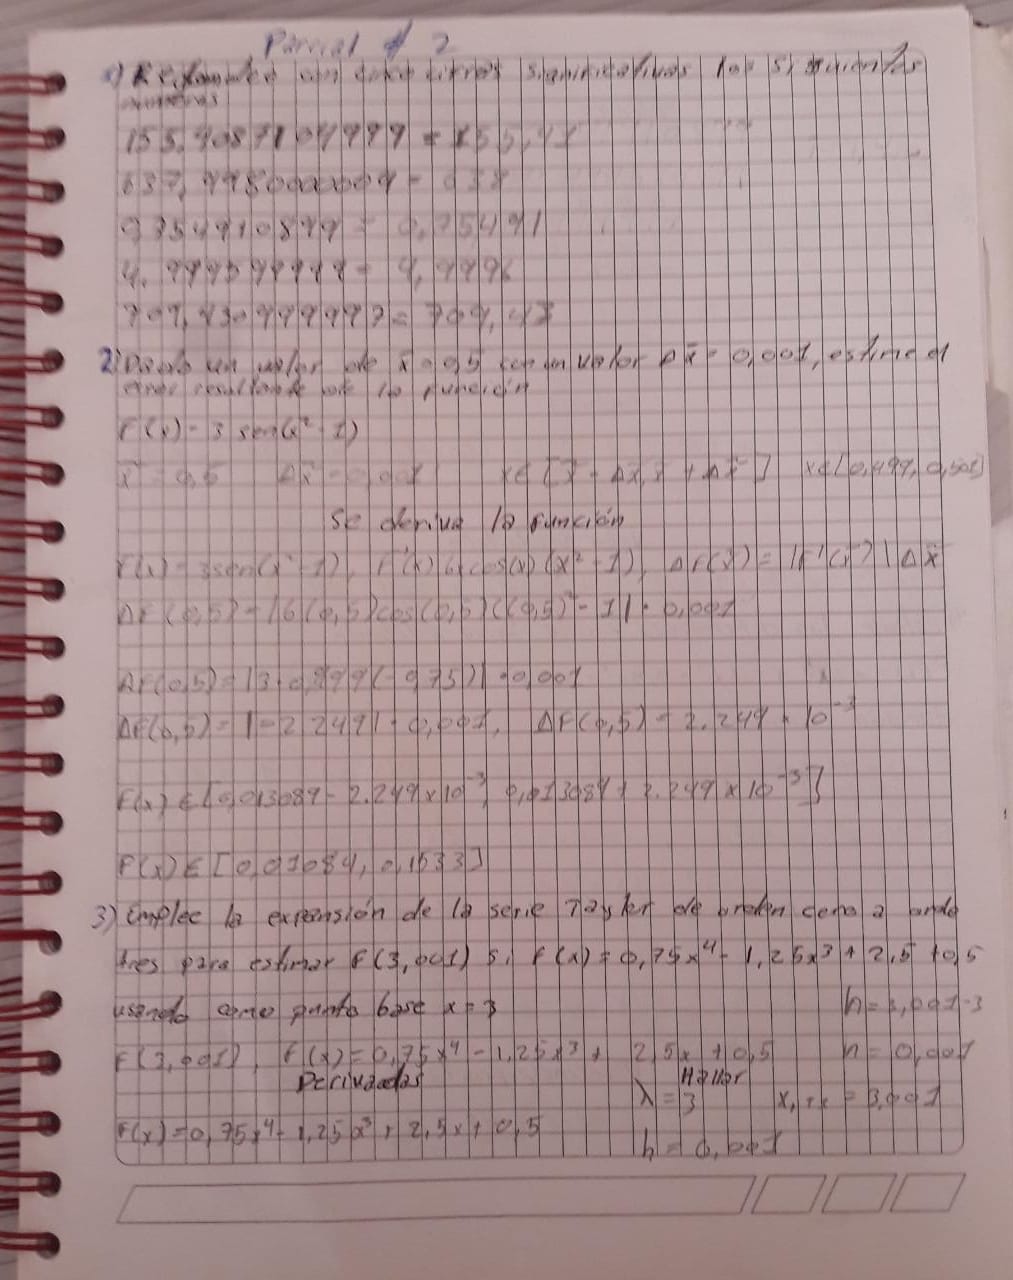 Parcial # 2
1) con cinco cifras significativas los siguientes
numeros
= 155,41
= 638
= 0,75491
= 4,9996
= 709,43
2) Dado un valor de x̄ = 0,5 con un valor Δx̄ = 0,001, estime el
error resultante de la función
F(x) = 3 sen(x² - 1)
x̄ = 0,5 Δx̄ = 0,001 x ∈ [x̄ - Δx̄, x̄ + Δx̄] x ∈ [0,499, 0,501]
Se deriva la función
F(x) = 3sen(x² - 1), F'(x) 6xcos(x) (x² - 1), ΔF(x̄) = |F'(x̄)| Δx̄
ΔF(0,5) = |6(0,5)cos(0,5)((0,5)² - 1)| · 0,001
ΔF(0,5) = |3 · 0,999(-0,75)| · 0,001
ΔF(0,5) = |-2.249| · 0,001, ΔF(0,5) = 2.249 × 10⁻³
F(x) ∈ [0,013089 - 2.249×10⁻³, 0,013089 + 2.249 × 10⁻³]
F(x) ∈ [0,01084, 0,1533]
3) Emplee la expansión de la serie Taylor de orden cero a orde
tres para estimar F(3,001) si f(x) = 0,75x⁴ - 1,25x³ + 2,5 + 0,5
usando como punto base x = 3 h = 3,001-3
F(3,001), f(x) = 0,75x⁴ - 1,25x³ + 2,5x + 0,5 h = 0,001
Derivadas Hallar
λ = 3 = 3,001
F(x) = 0,75x⁴ - 1,25x³ + 2,5x + 0,5
h = 0,001